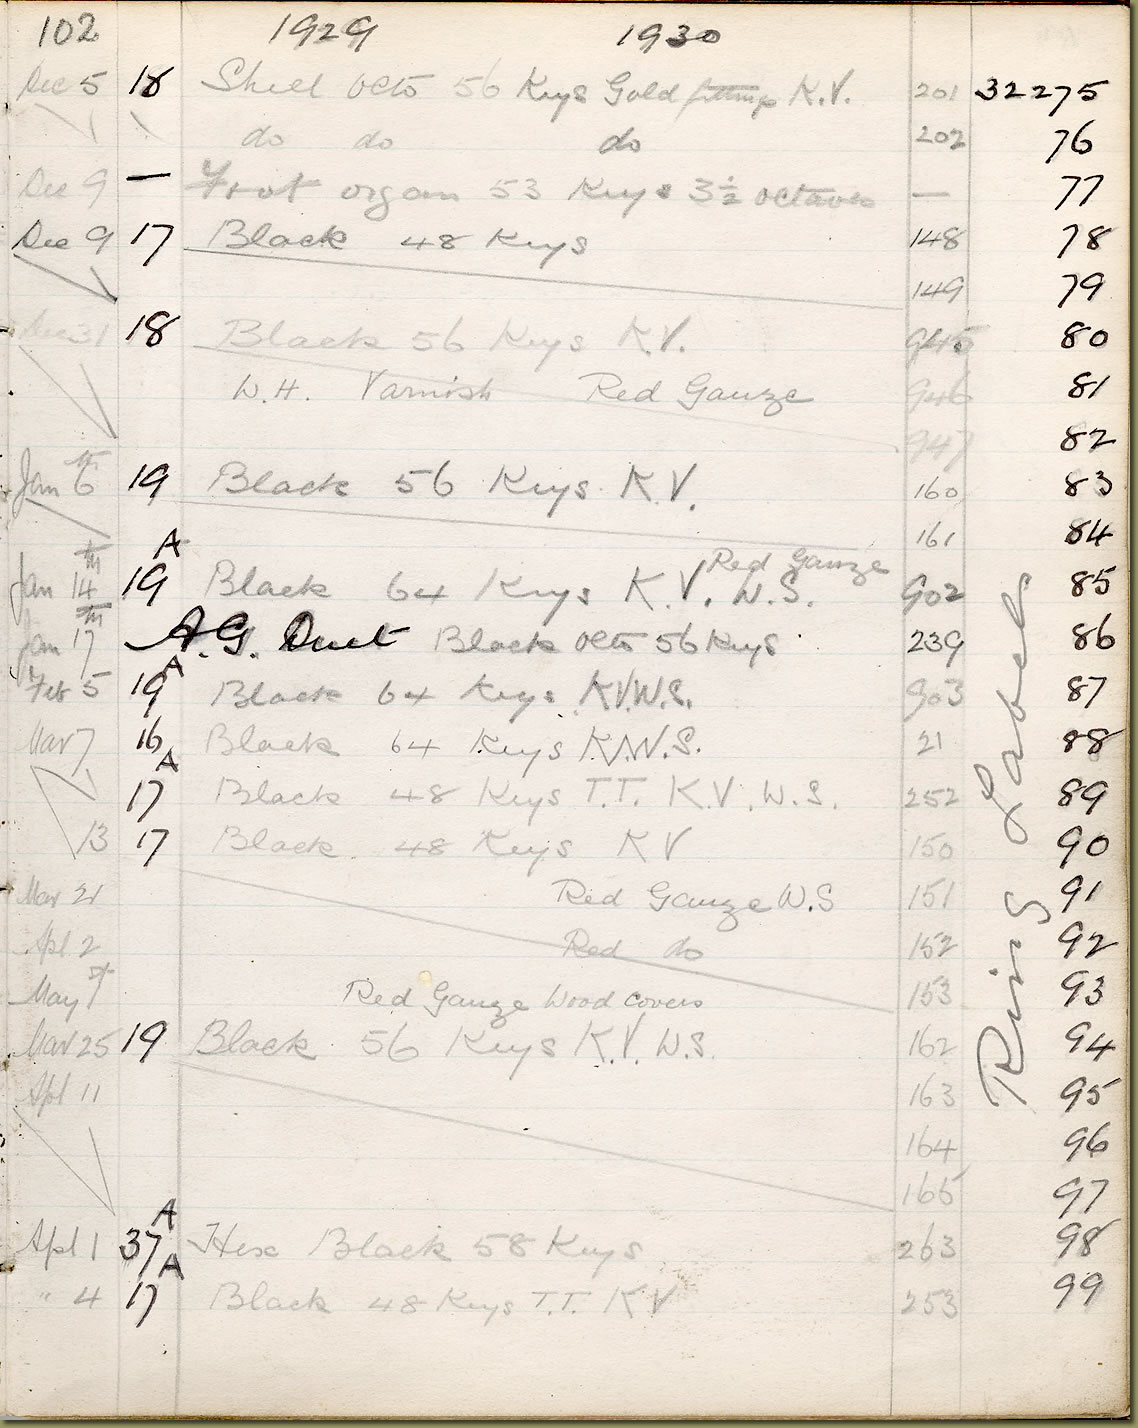 102 1929 1930
Dec 5 18 Shell octo 56 Keys Gold fittings K.V. 201 32275
do do do 202 76
Dec 9 — Foot organ 53 Keys 3½ octaves — 77
Dec 9 17 Black 48 Keys 148 78
149 79
Dec 31 18 Black 56 Keys K.V. 945 80
W.H. Varnish Red Gauze 946 81
947 82
Jan 6th 19 Black 56 Keys K.V. 160 83
161 84
Jan 14th 19A Black 64 Keys K.V. W.S. Red Gauze 902 85
Jan 17th A.G. Duet Black octo 56 Keys 239 86
Feb 5 19A Black 64 Keys K.V.W.S. 903 87
Mar 7 16 Black 64 Keys K.V.W.S. 21 88
17A Black 48 Keys T.T. K.V. W.S. 252 89
13 17 Black 48 Keys KV 150 90
Mar 21 Red Gauze W.S 151 91
Apl 2 Red do 152 92
May 1st Red Gauze Wood covers 153 93
Mar 25 19 Black 56 Keys K.V. W.S. 162 94
Apl 11 163 95
164 96
165 97
Apl 1 37A Hex Black 58 Keys 263 98
" 4 17A Black 48 Keys T.T. KV 253 99
Ring Labels